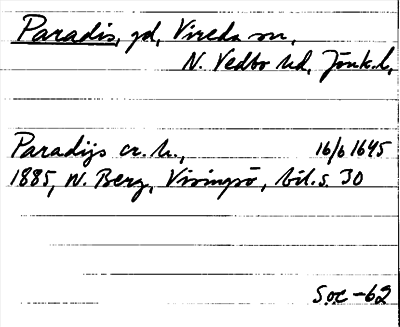 Paradis, gd, Vireda sn,
N. Vedbo hd, Jönk. l,
Paradijs cr. h., 16/6 1645
1885, W. Berg, Visingsö, bil. s. 30
Soc -62